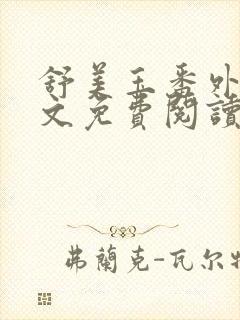 舒美玉番外
文免費閱讀
弗蘭克-瓦尔特